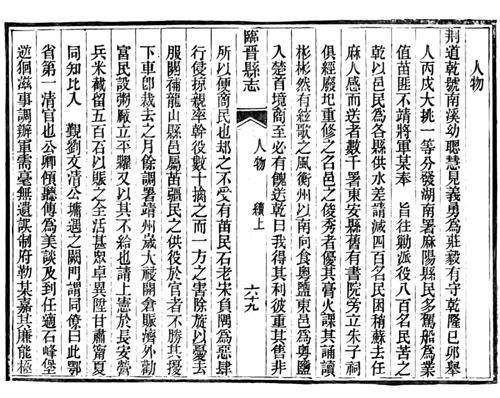 人物
荆道乾號南溪幼聰慧見義勇為莊毅有守乾隆己卯舉
人丙戌大挑一等分發湖南署麻陽縣民多駕船為業
值苗匪不靖將軍某奉 旨往勦派役八百名民苦之
乾以邑民為各縣供水差請減四百名民困稍蘇去任
麻人感而送者數千署東安縣舊有書院旁立朱子祠
俱經廢圮重修之召邑之俊秀者優其膏火課其誦讀
彬彬然有絃歌之風衡州以南向食粵鹽東邑為粵鹽
入楚首境商至必有餽送乾曰我得其利彼重其售非
臨晉縣志
人物 績上
六十九
所以便商民也却之不受有苗民石老宋負隅為惡肆
行使掠親率幹役數十擒之而一方之害除旋以憂去
服闋補龍山縣邑屬苗疆民之供役於官者不勝其擾
下車卽裁去之月餘調署靖州歲大祲開倉賑濟外勸
富民設粥厰立平糶又以其不給也請上憲於長安營
兵米截留五百石以賑之全活甚衆卓異陞甘肅寧夏
同知比入 覲劉文清公墉遇之闕門謂同僚曰此鄂
省第一清官也公卿傾聽傳為美談及到任適石峰堡
逆獧滋事調辦軍需毫無遺誤制府勒某嘉其廉能檄